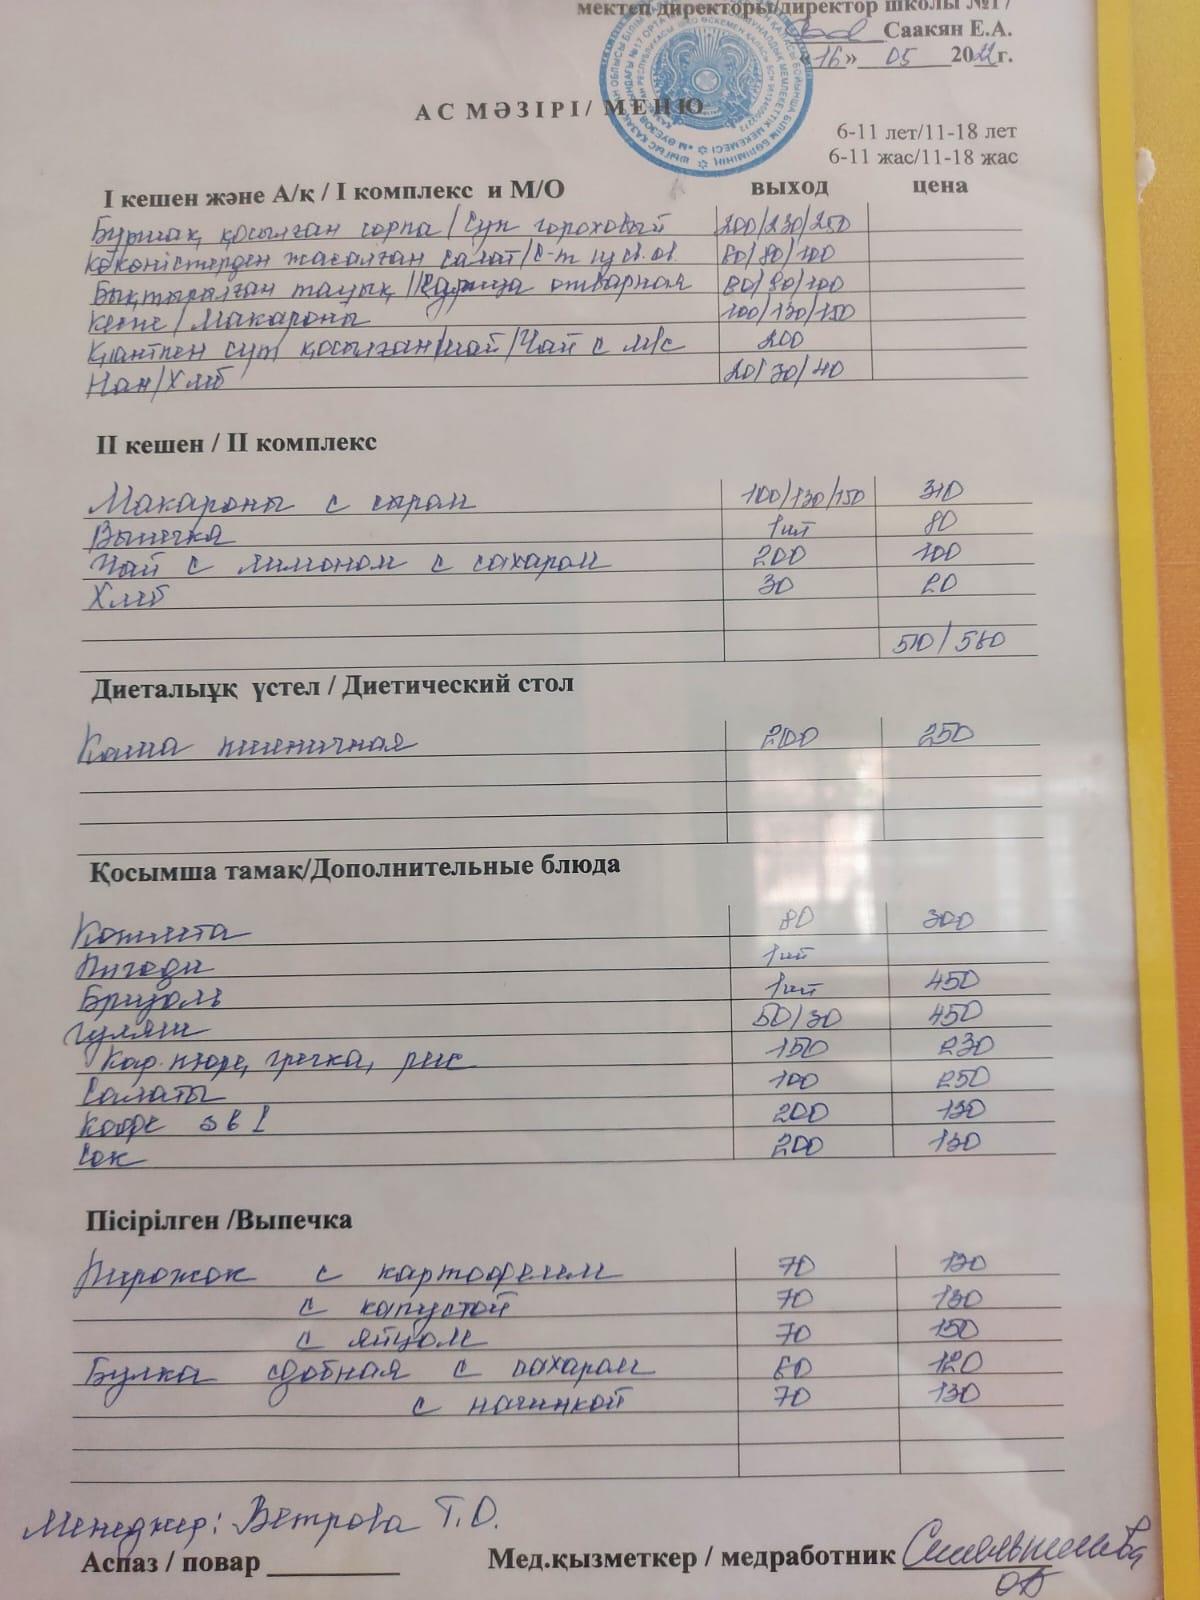 мектеп директоры/директор школы №17
Саакян Е.А.
«16» 05 2022г.
АС МӘЗІРІ / МЕНЮ
6-11 лет/11-18 лет
6-11 жас/11-18 жас
I кешен және А/қ / I комплекс и М/О выход цена
Бұршақ қосылған сорпа / Суп гороховый 200/230/250
Көкөністерден жасалған салат/С-т из св.ов. 80/80/100
Бықтырылған тауық / Курица отварная 80/80/100
Кеспе / Макароны 100/130/150
Қантпен сүт қосылған шай / Чай с м/с 200
Нан/Хлеб 20/30/40
II кешен / II комплекс
Макароны с сыром 100/130/150 310
Выпечка 1шт 80
Чай с лимоном с сахаром 200 100
Хлеб 30 20
510/560
Диеталыұқ үстел / Диетический стол
Каша пшеничная 200 250
Қосымша тамақ/Дополнительные блюда
Котлета 80 300
Пигоди 1шт
Бризоль 1шт 450
Гуляш 50/30 450
Кар. пюре, гречка, рис 150 230
Салаты 100 250
Кофе 3 в 1 200 130
Сок 200 130
Пісірілген /Выпечка
Пирожок с картофелем 70 130
с капустой 70 130
с яйцом 70 150
Булка сдобная с сахаром 60 120
с начинкой 70 130
Менеджер: Ветрова Т.О.
Аспаз / повар Мед.қызметкер / медработник